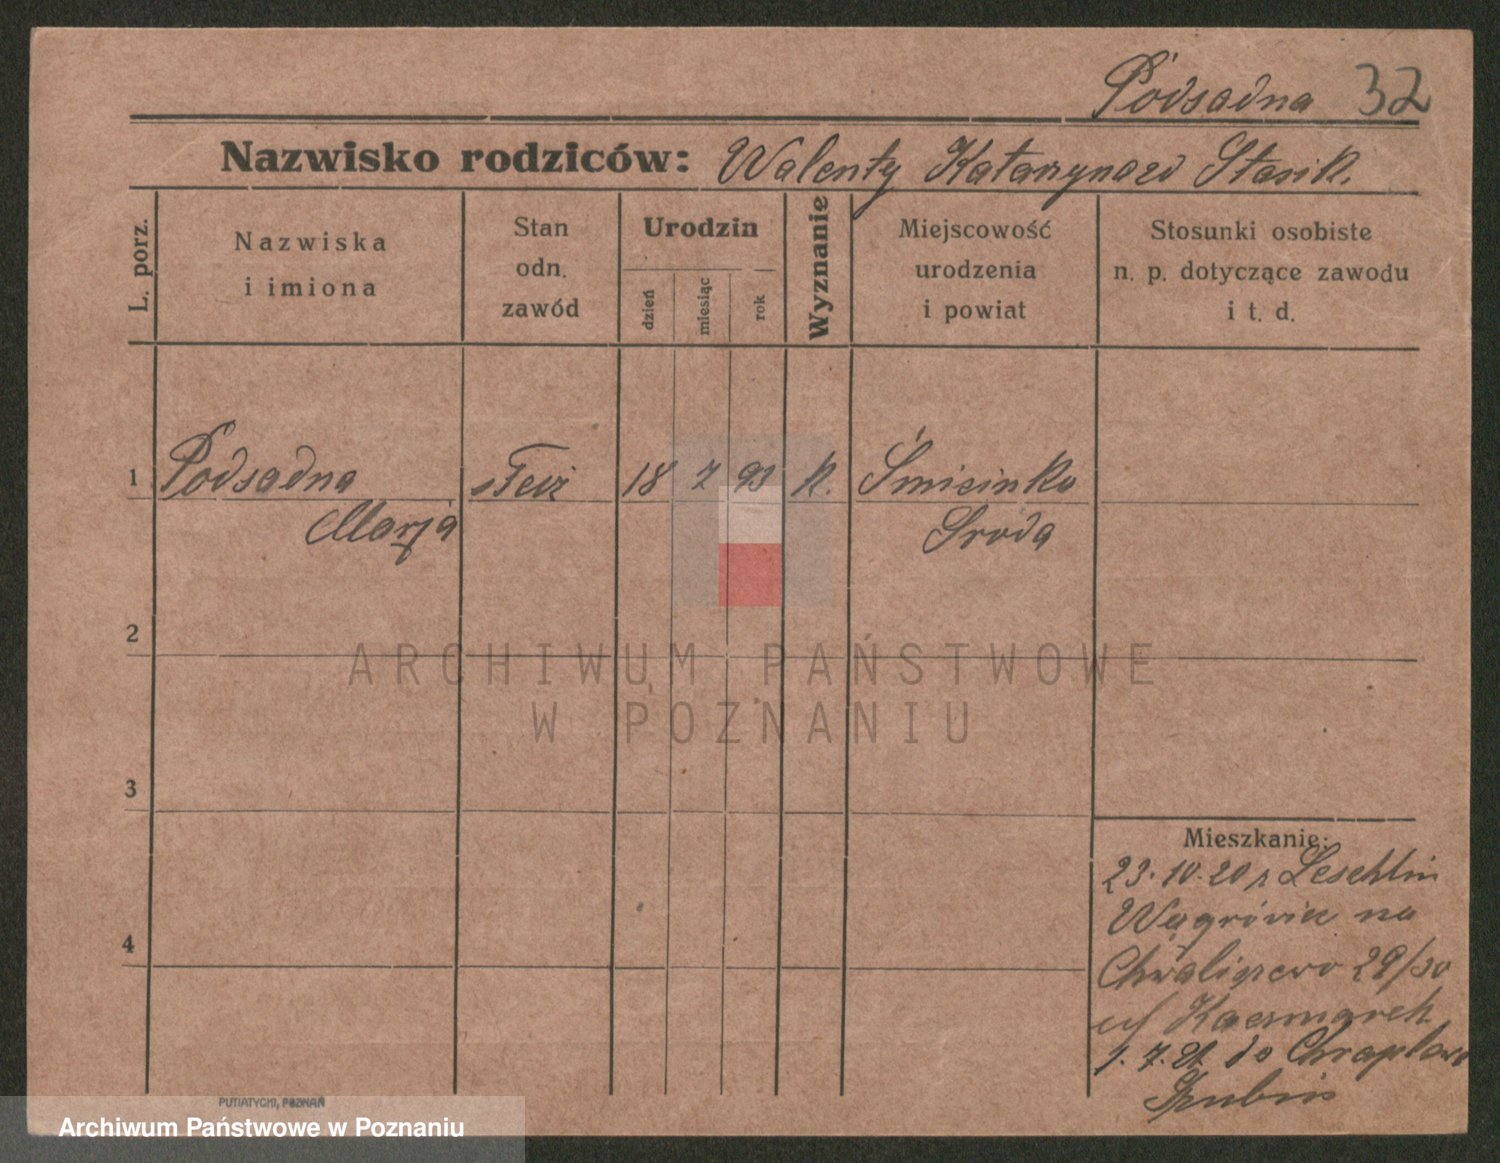 Podsadna 32
Nazwisko rodziców: Walenty Katarzyna zd Stasik.
L. porz.
Nazwiska
i imiona
Stan
odn.
zawód
Urodzin
dzień
miesiąc
rok
Wyznanie
Miejscowość
urodzenia
i powiat
Stosunki osobiste
n. p. dotyczące zawodu
i t. d.
1 Podsadna 18 7 93 K.
Marja Środa
2
3
4
Mieszkanie:
23.10.20 r Leschlin
na
29/30
Kaczmarek
1. 7. 21. do
PUTIATYCKI, POZNAŃ
ARCHIWUM PAŃSTWOWE
W POZNANIU
Archiwum Państwowe w Poznaniu